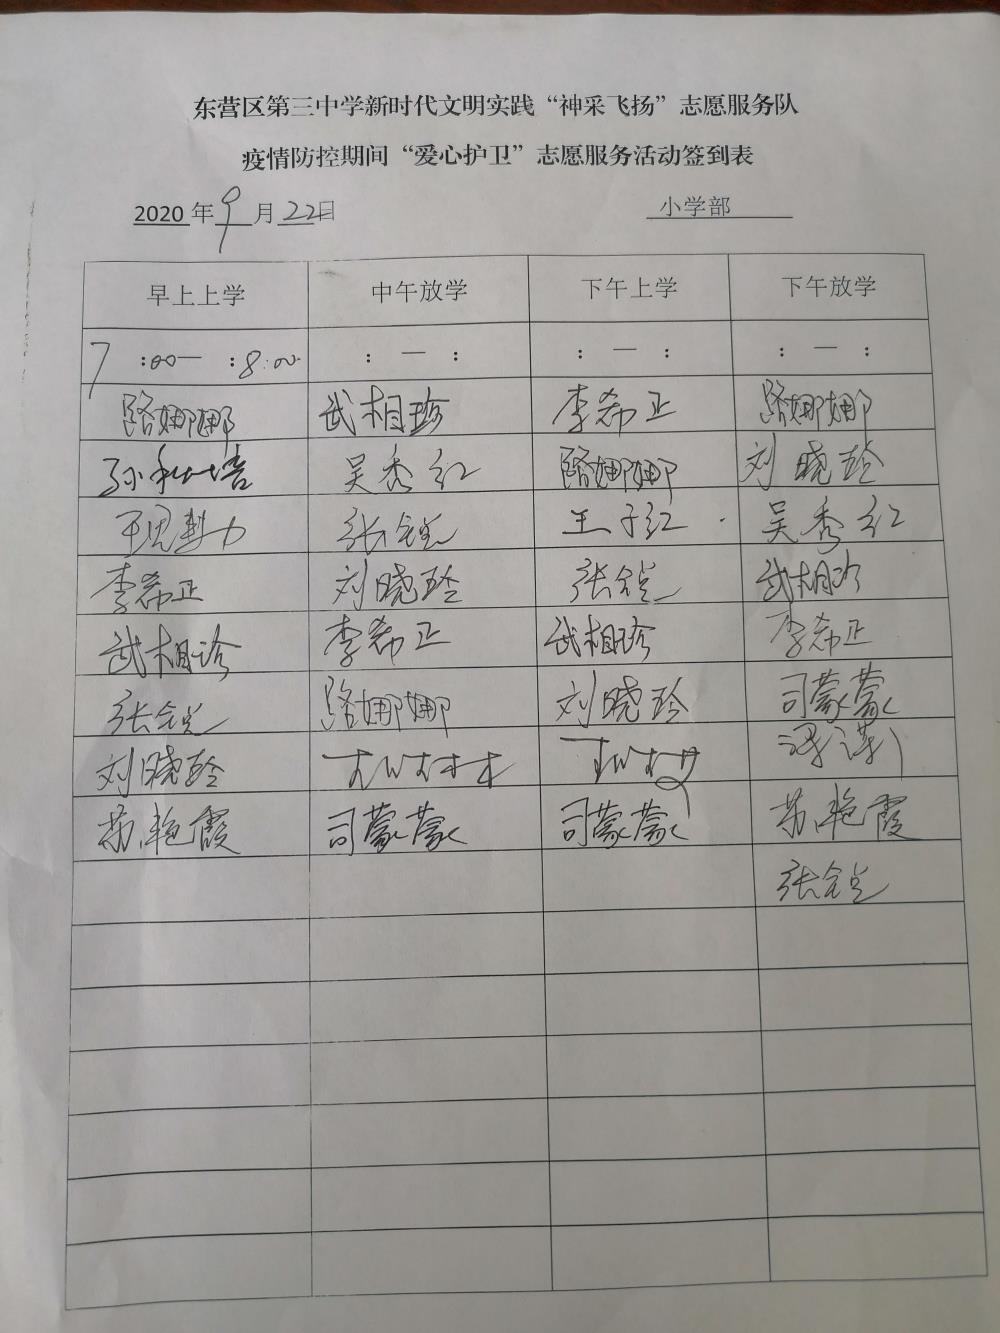 东营区第三中学新时代文明实践“神采飞扬”志愿服务队
疫情防控期间“爱心护卫”志愿服务活动签到表
2020 年 9 月 22日 小学部
早上上学 中午放学 下午上学 下午放学
7 :00— :8:00 : — : : — : : — :
路娜娜 武相珍 李希正 路娜娜
吴秀红 路娜娜 刘晓玲
王子红 吴秀红
李希正 刘晓玲 武相珍
武相珍 李希正 武相珍 李希正
路娜娜 刘晓玲 司蒙蒙
刘晓玲
苏艳霞 司蒙蒙 司蒙蒙 苏艳霞